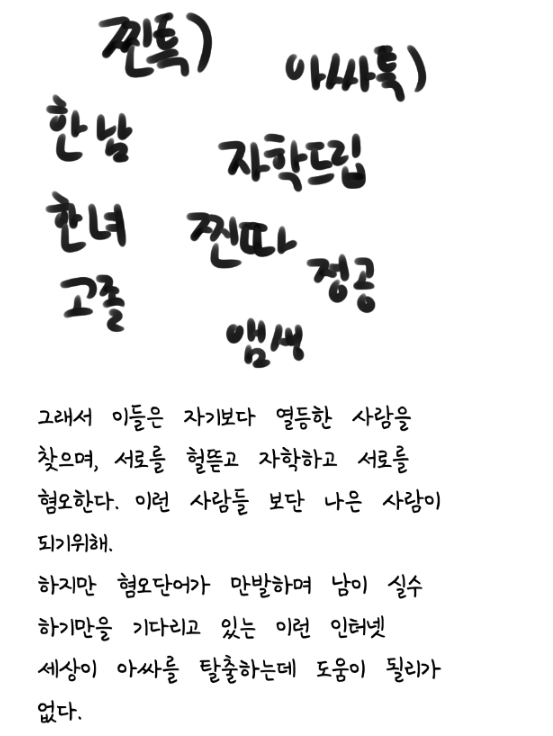 찐특)
아싸특)
한남
자학드립
한녀
찐따
정공
고졸
앰생
그래서 이들은 자기보다 열등한 사람을
찾으며, 서로를 헐뜯고 자학하고 서로를
혐오한다. 이런 사람들 보단 나은 사람이
되기위해.
하지만 혐오단어가 만발하며 남이 실수
하기만을 기다리고 있는 이런 인터넷
세상이 아싸를 탈출하는데 도움이 될리가
없다.